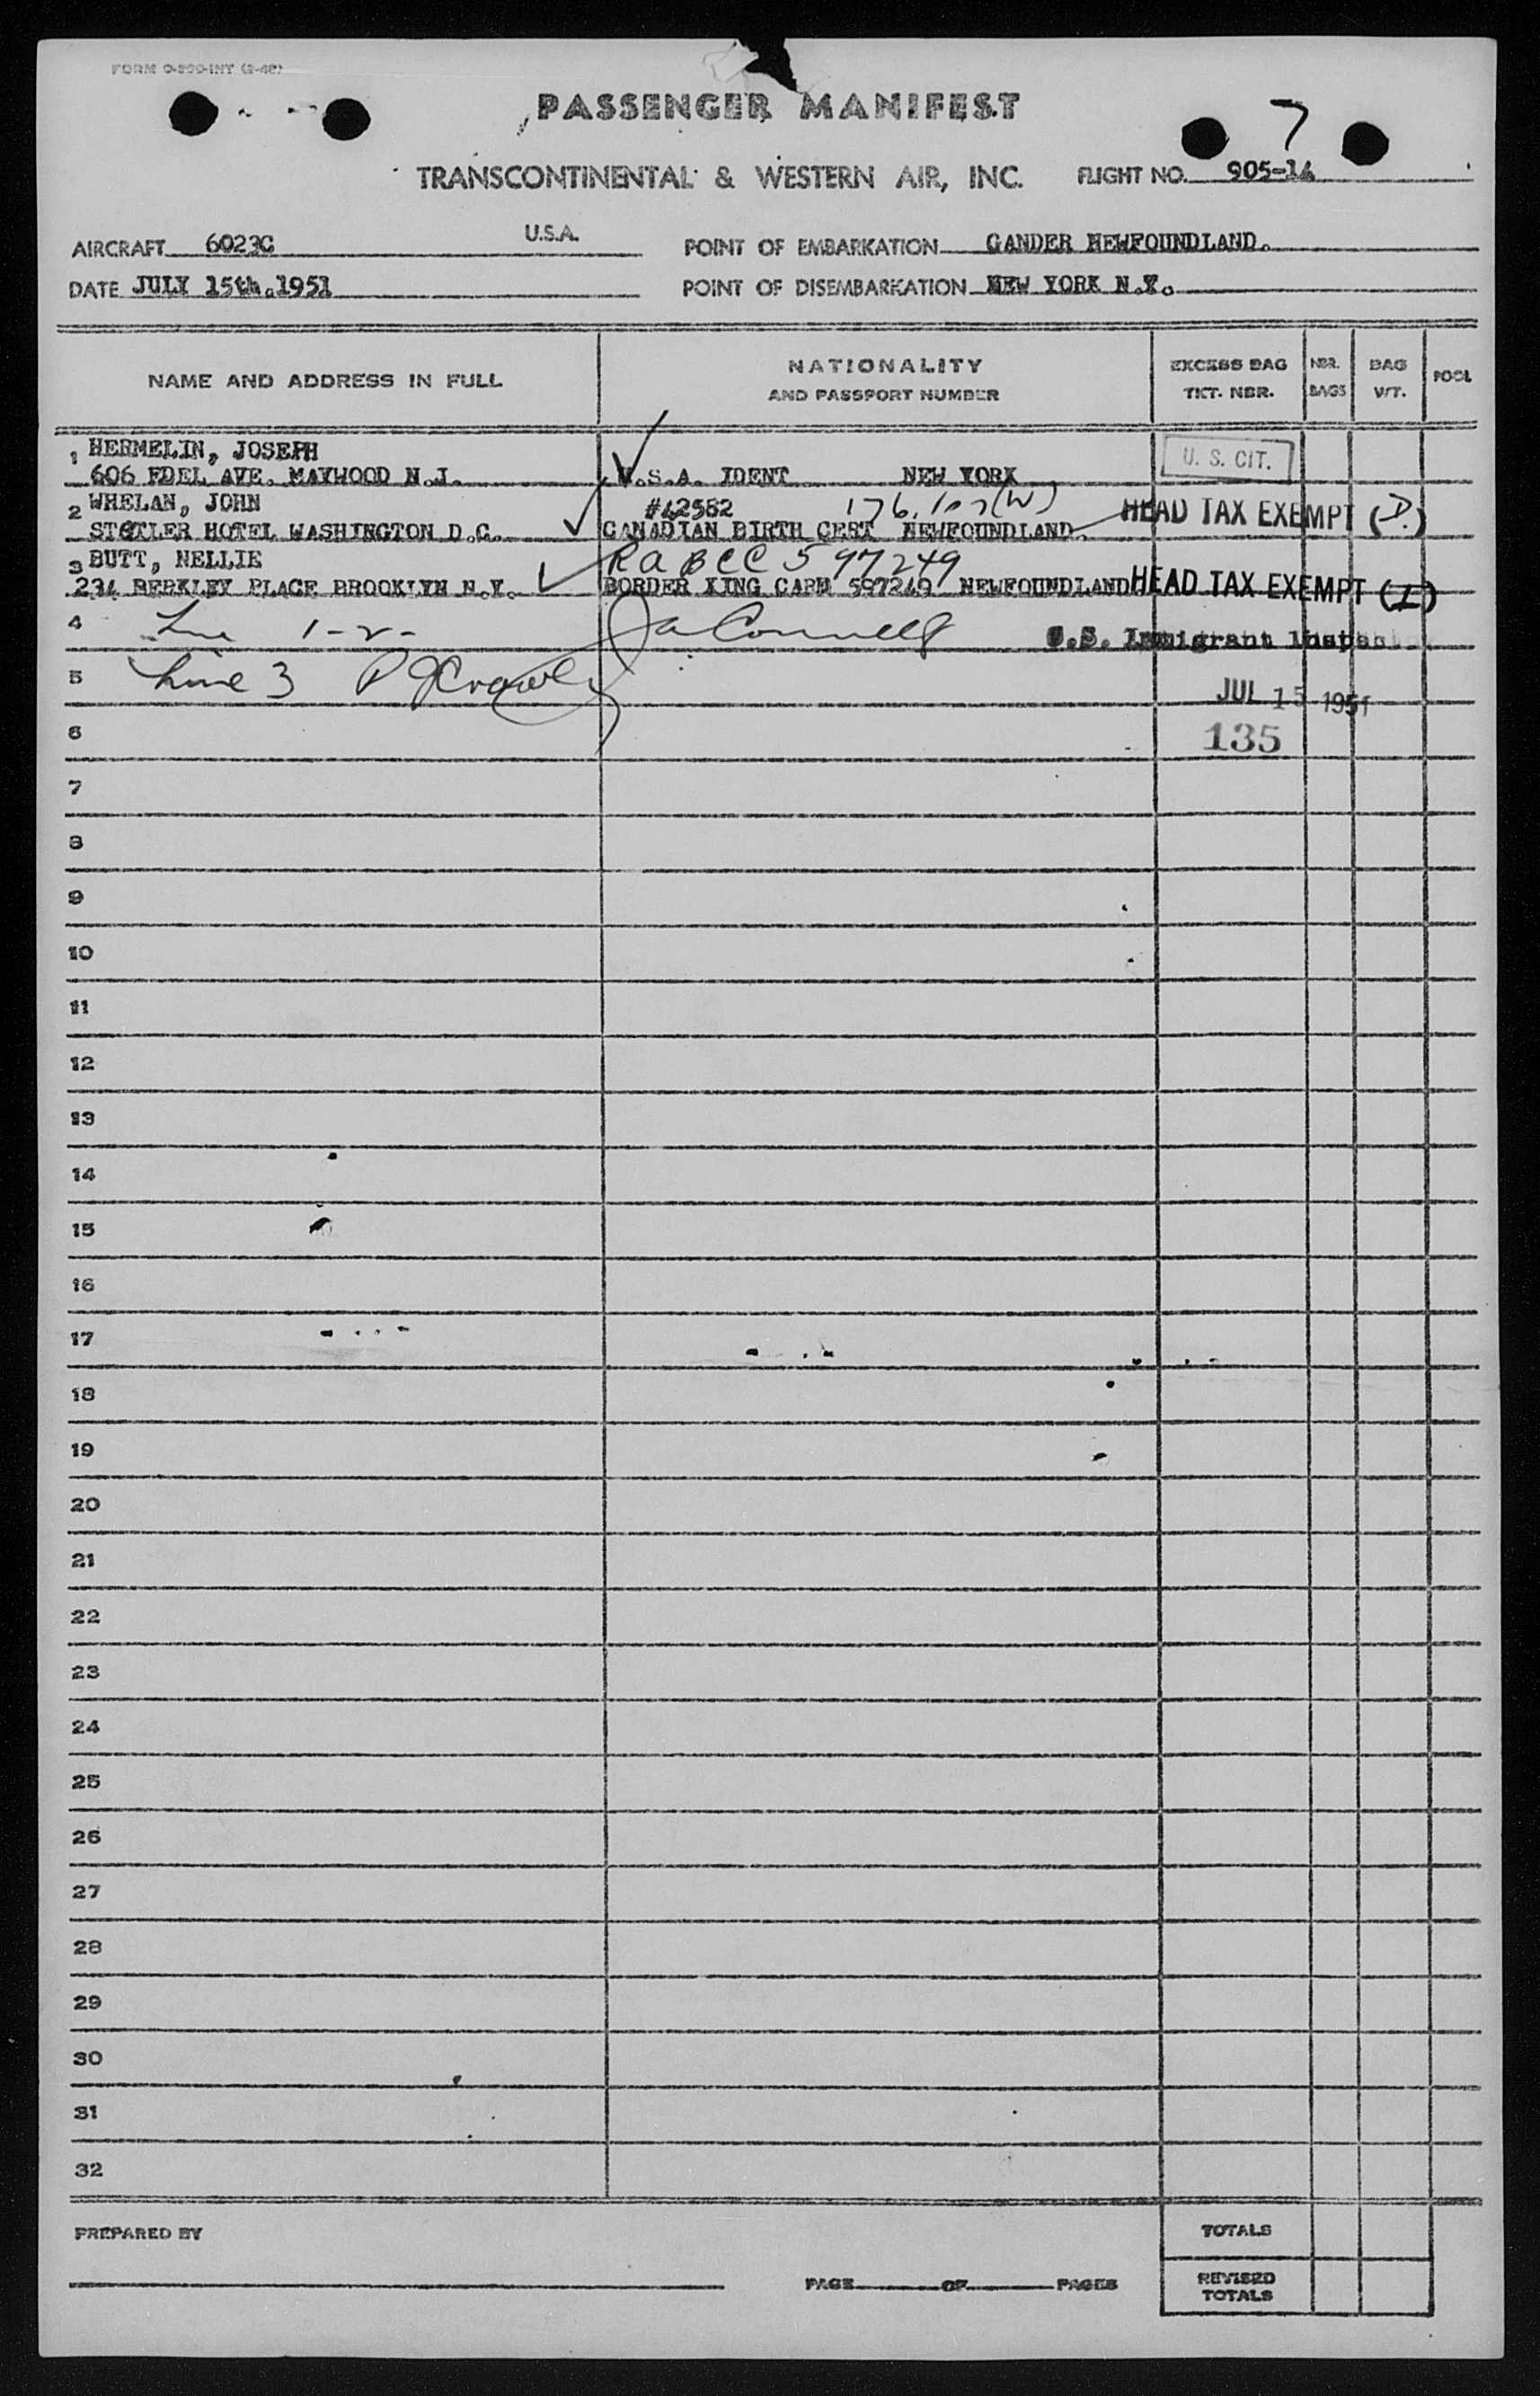 FORM O-200-INT (2-48)
PASSENGER MANIFEST
7
TRANSCONTINENTAL & WESTERN AIR, INC. FLIGHT NO. 905-14
AIRCRAFT 6023C U.S.A. POINT OF EMBARKATION GANDER NEWFOUNDLAND.
DATE JULY 15th.1951 POINT OF DISEMBARKATION NEW YORK N.Y.
NAME AND ADDRESS IN FULL NATIONALITY AND PASSPORT NUMBER EXCESS BAG TKT. NBR. NBR. BAGS BAG WT. POOL
1 HERMELIN, JOSEPH
606 EDEL AVE. MAYWOOD N.J. U.S.A. IDENT NEW YORK U. S. CIT.
2 WHELAN, JOHN #42582 176.107(W) HEAD TAX EXEMPT (D.)
STATLER HOTEL WASHINGTON D.C. CANADIAN BIRTH CERT NEWFOUNDLAND.
3 BUTT, NELLIE RABCC 597249
234 BERKLEY PLACE BROOKLYN N.Y. BORDER XING CARD 597249 NEWFOUNDLAND HEAD TAX EXEMPT (I)
4 Line 1-2- U.S. Immigrant Inspec
5 Line 3
JUL 15 1951
6 135
7
8
9
10
11
12
13
14
15
16
17
18
19
20
21
22
23
24
25
26
27
28
29
30
31
32
PREPARED BY TOTALS
PAGE OF PAGES REVISED TOTALS